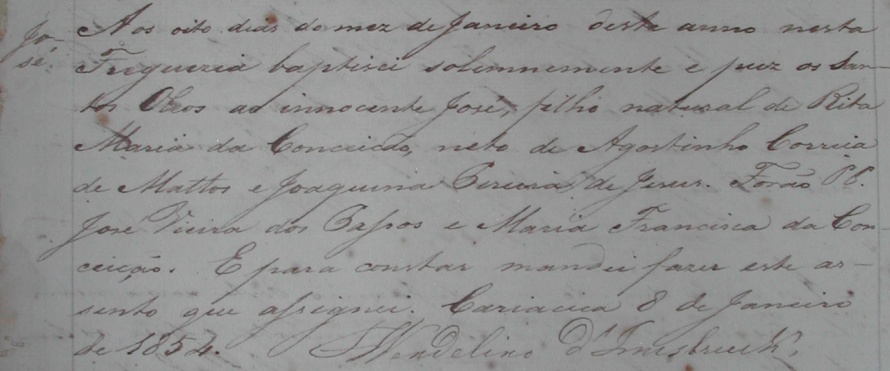 Jo-
sé.
Aos oito dias do mez de Janeiro deste anno nesta
Freguezia baptisei solemnemente e puz os San-
tos Oleos ao innocente José, filho natural de Rita
Maria da Conceição, neto de Agostinho Correia
de Mattos e Joaquina Pereira de Jesus. Forão PP.
José Vieira dos Passos e Maria Francisca da Con-
ceição. E para constar mandei fazer este as-
sento que assignei. Cariacica 8 de Janeiro
de 1854. Wendelino d'Innsbruck.